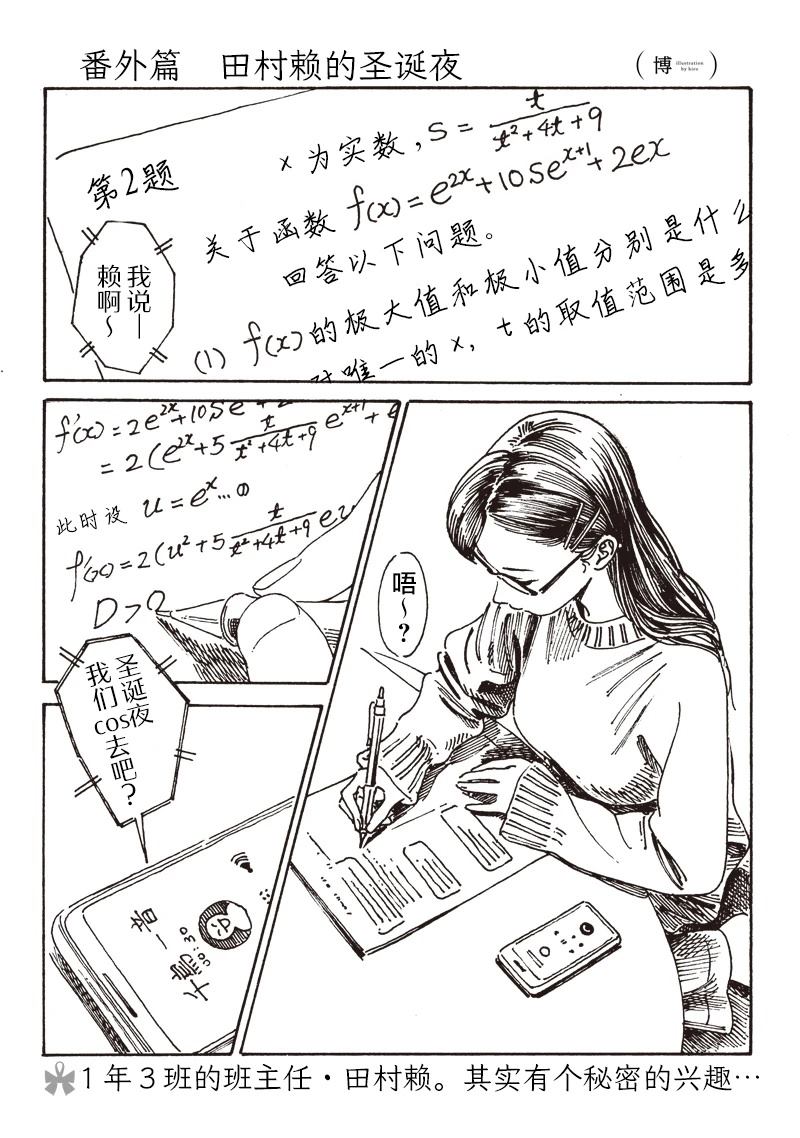 番外篇　田村赖的圣诞夜
（博 illustration by hiro）
第2题
x 为实数, S = t/(t²+4t+9)
关于函数 f(x)=e^{2x}+10Se^{x+1}+2ex
回答以下问题。
(1) f(x)的极大值和极小值分别是什么
对唯一的 x, t 的取值范围是多
我说—
赖啊～
f'(x)=2e^{2x}+10Se
=2(e^{2x}+5 t/(t²+4t+9) e^{x+1}+e
此时设 u=e^x…①
f'(x)=2(u²+5 t/(t²+4t+9) eu
D>0
唔～？
圣诞夜
我们cos去吧？
一音
30:30
1年3班的班主任·田村赖。其实有个秘密的兴趣…